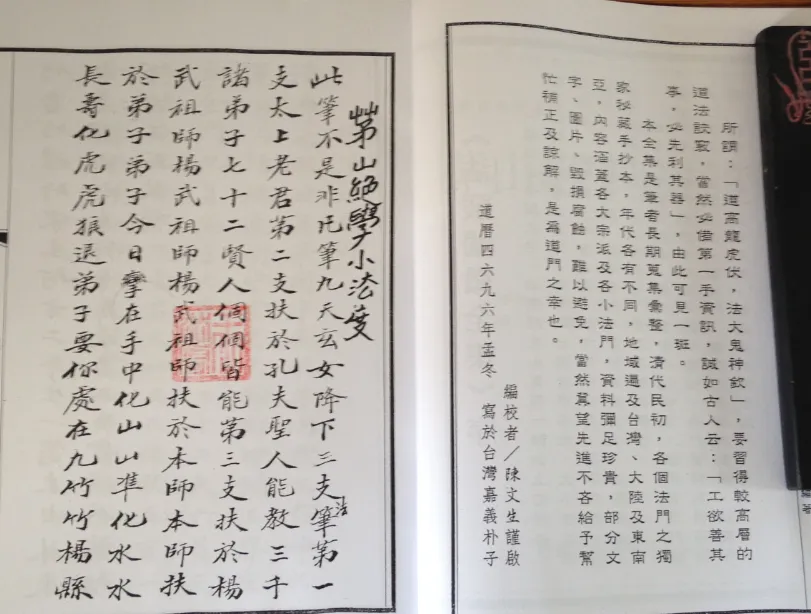 所謂：「道高龍虎伏，法大鬼神欽」，要習得較高層的
道法訣竅，當然必備第一手資訊，誠如古人云：「工欲善其
事，必先利其器」，由此可見一斑。
本全集是筆者長期蒐集彙整，清代民初，各個法門之獨
家秘藏手抄本，年代各有不同，地域遍及台灣、大陸及東南
亞，內容涵蓋各大宗派及各小法門，資料彌足珍貴，部分文
字、圖片、毀損腐蝕，難以避免，當然冀望先進不吝給予幫
忙補正及諒解，是為道門之幸也。
編校者／陳文生謹啟
道曆四六九六年孟冬 寫於台灣嘉義朴子
茅山絕學小法度
此筆不是非凡筆九天玄女降下三支筆第一
法
支太上老君第二支扶於孔夫聖人能教三千
諸弟子七十二賢人個個皆能第三支扶於楊
武祖師楊武祖師楊武祖師扶於本師本師扶
於弟子弟子今日在手中化山山準化水水
長壽化虎虎狼退弟子要你處在九竹竹楊縣